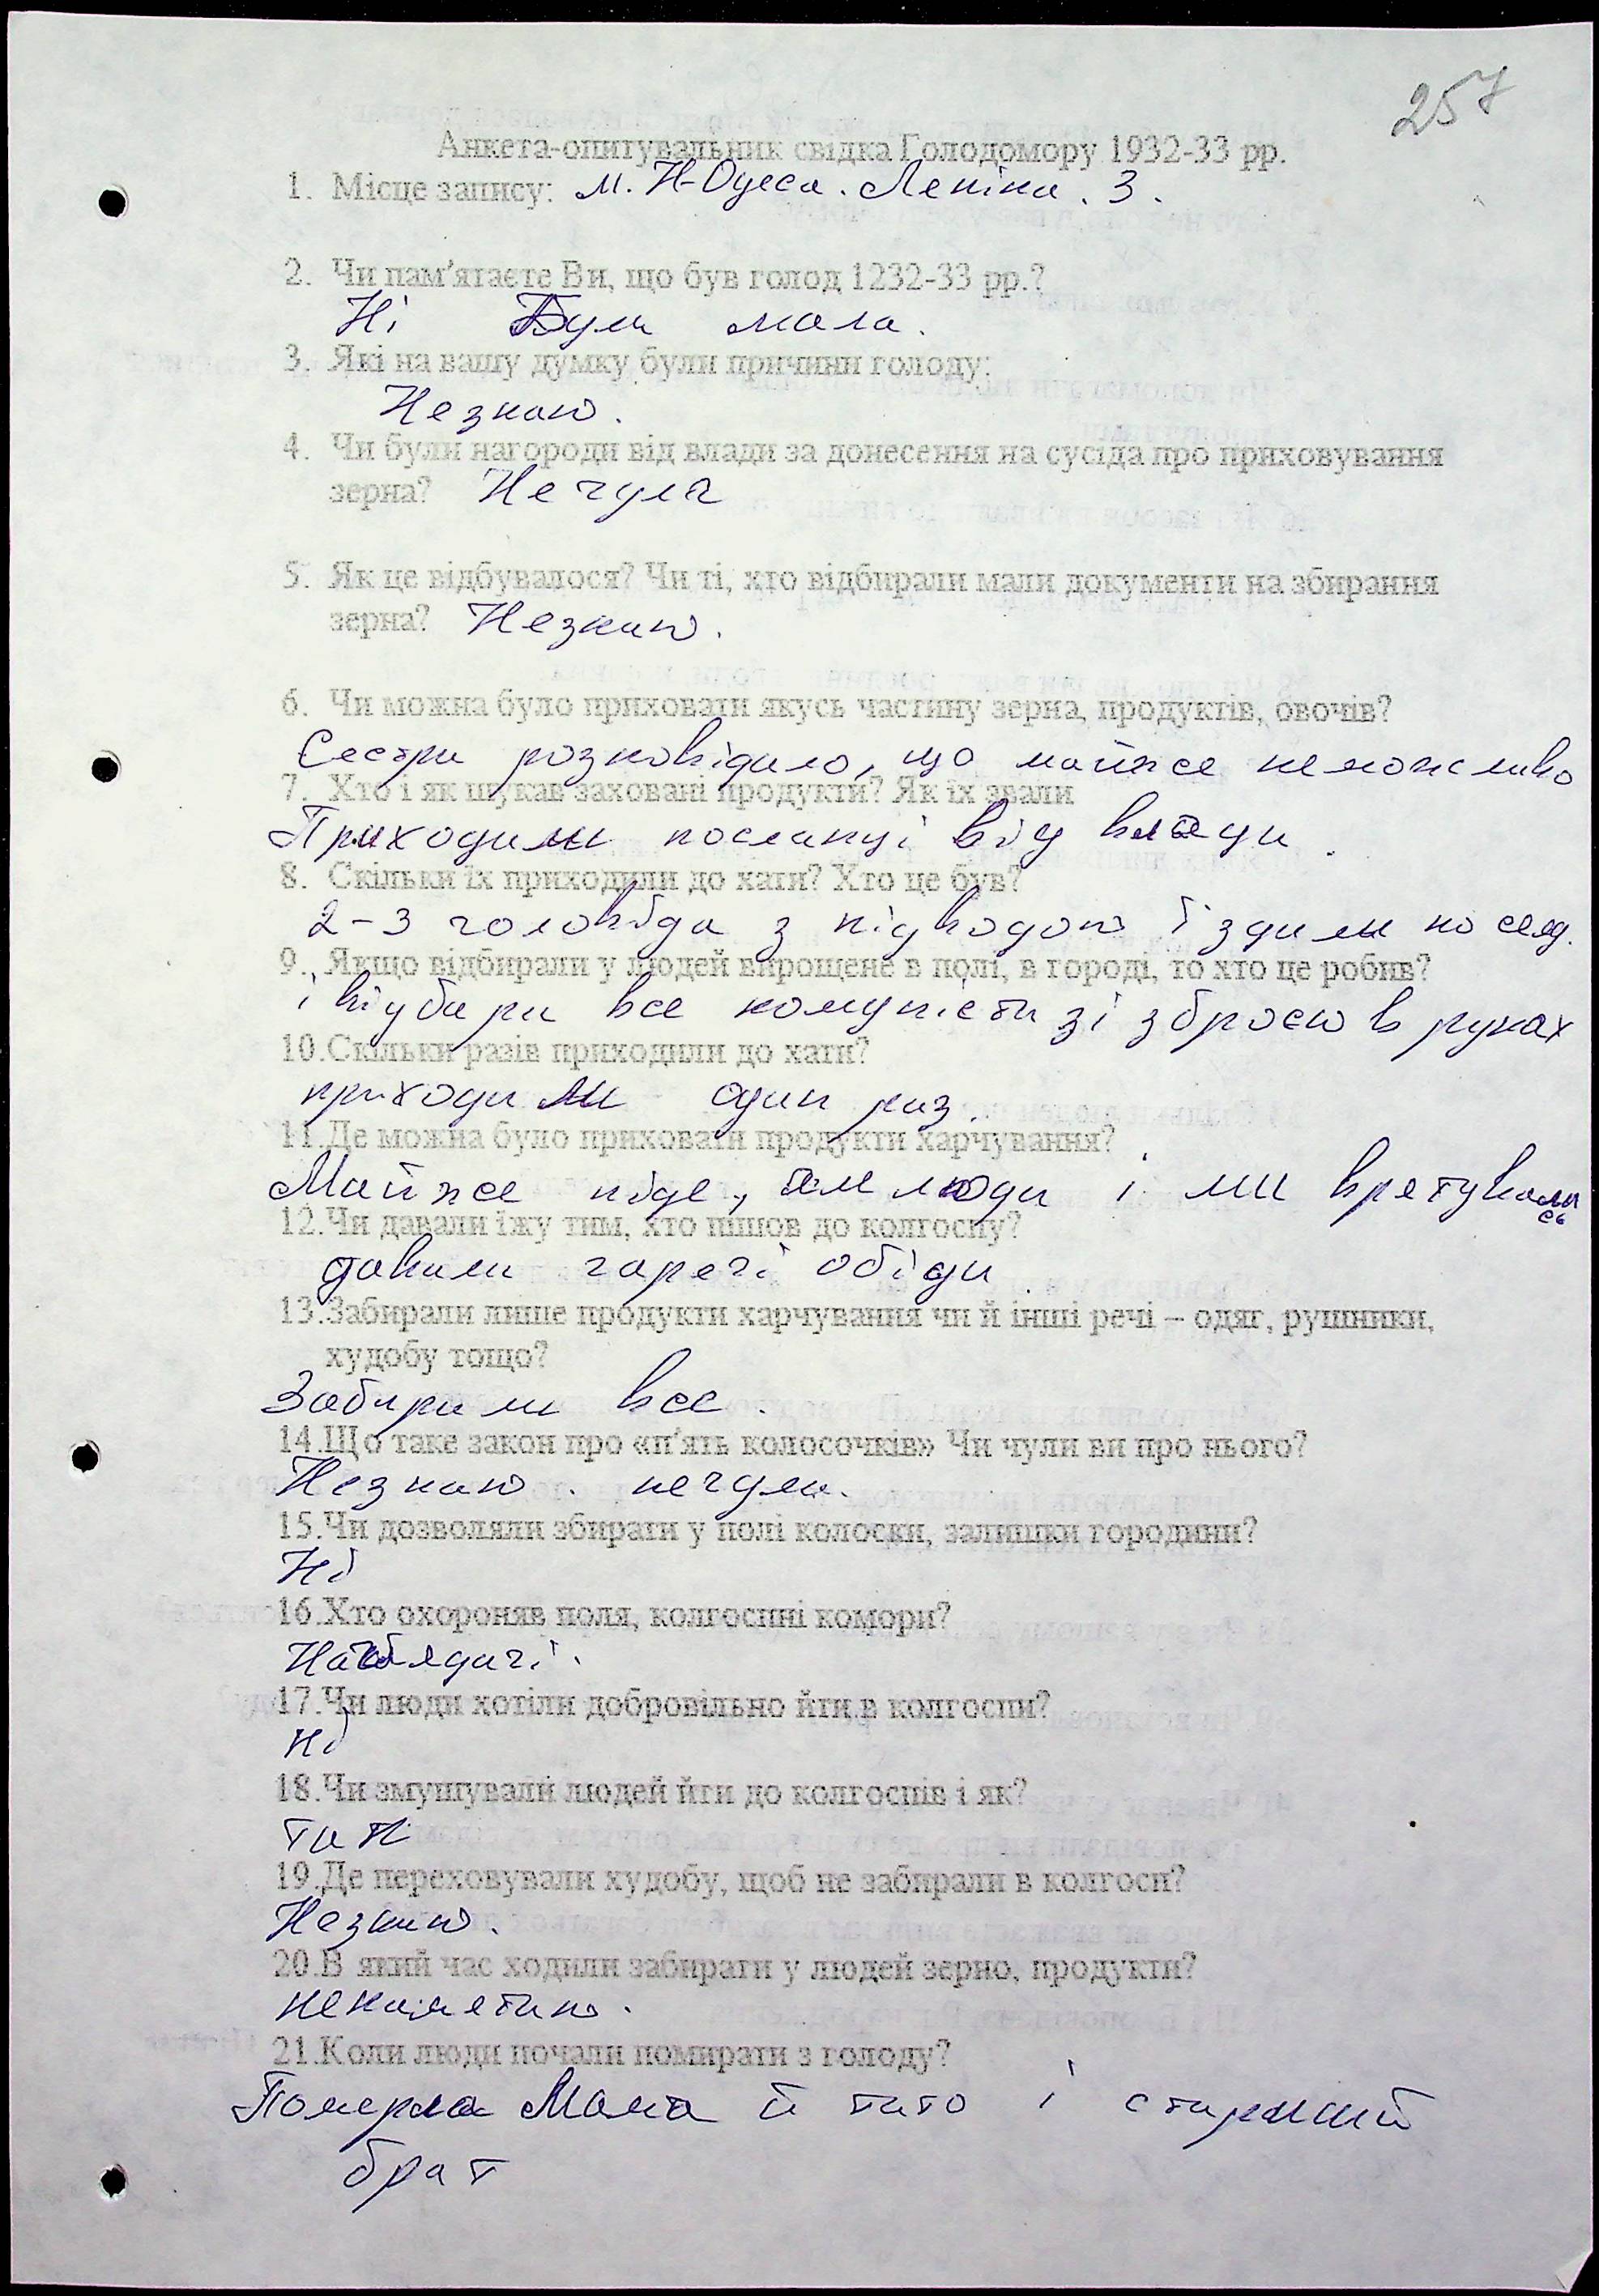 257
Анкета-опитувальник свідка Голодомору 1932-33 рр.
1. Місце запису: м. Н-Одеса. Леніна. 3.
2. Чи пам'ятаєте Ви, що був голод 1232-33 рр.?
Ні Була мала.
3. Які на вашу думку були причини голоду:
Незнаю.
4. Чи були нагороди від влади за донесення на сусіда про приховування
зерна? Нечула
5. Як це відбувалося? Чи ті, хто відбирали мали документи на збирання
зерна? Незнаю.
6. Чи можна було приховати якусь частину зерна, продуктів, овочів?
Сестра розповідала, що майже неможливо
7. Хто і як шукав заховані продукти? Як їх звали
Приходили посланці від влади.
8. Скільки їх приходили до хати? Хто це був?
2-3 чоловіда з підводою їздили по
9. Якщо відбирали у людей вирощене в полі, в городі, то хто це робив?
і відбири все комуністи зі зброєю в руках
10. Скільки разів приходили до хати?
приходили один раз.
11. Де можна було приховати продукти харчування?
Майже ніде, люди і ми врятувались
12. Чи давали їжу тим, хто пішов до колгоспу?
давали гарячі обіди.
13. Забирали лише продукти харчування чи й інші речі – одяг, рушники,
худобу тощо?
Забирали все.
14. Що таке закон про «п'ять колосочків» Чи чули ви про нього?
Незнаю. нечула.
15. Чи дозволяли збирати у полі колоски, залишки городини?
Ні
16. Хто охороняв поля, колгоспні комори?
17. Чи люди хотіли добровільно йти в колгоспи?
Ні
18. Чи змушували людей йти до колгоспів і як?
так
19. Де переховували худобу, щоб не забирали в колгосп?
Незнаю.
20. В який час ходили забирати у людей зерно, продукти?
непамятаю.
21. Коли люди почали помирати з голоду?
Померла Мама й тато і старший
брат